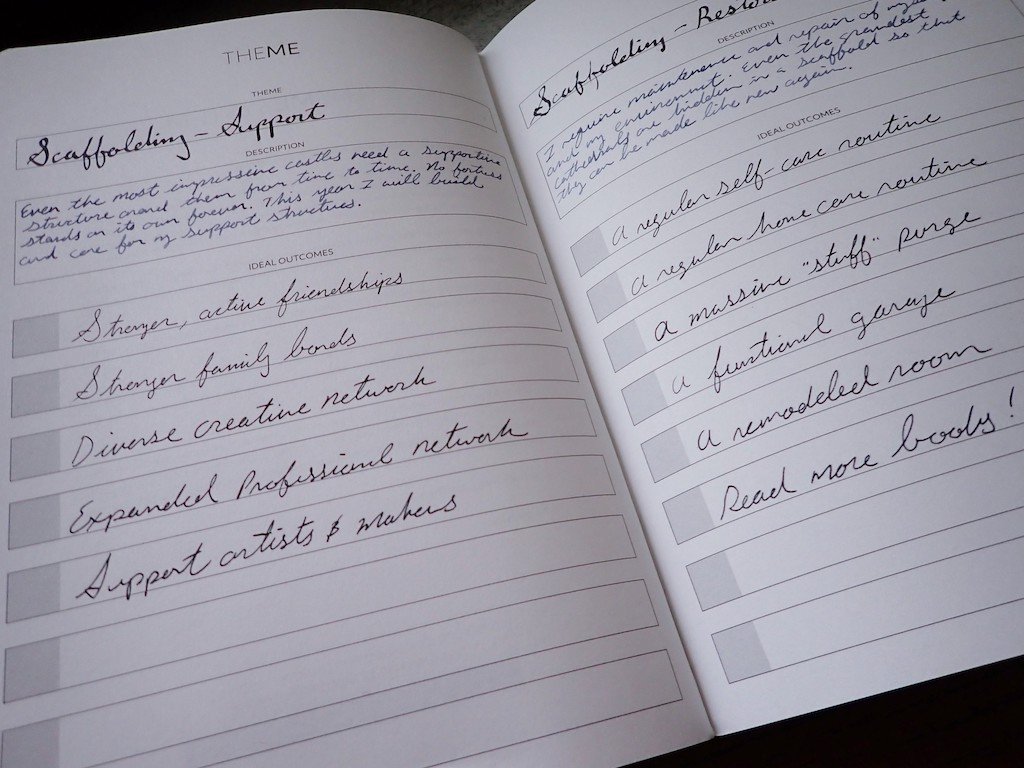 THEME
THEME
Scaffolding – Support
DESCRIPTION
Even the most impressive castles need a supportive
structure around them from time to time. No fortress
stands on its own forever. This year I will build
and care for my support structures.
IDEAL OUTCOMES
Stronger, active friendships
Stronger family bonds
Diverse creative network
Expanded Professional network
Support artists & makers
Scaffolding – Resto
DESCRIPTION
I require maintenance and repair of
and my environment. Even the grandest
cathedrals are hidden in a scaffold so that
they can be made like new again.
IDEAL OUTCOMES
A regular self-care routine
A regular home care routine
A massive "stuff" purge
A functional garage
A remodeled room
Read more books!